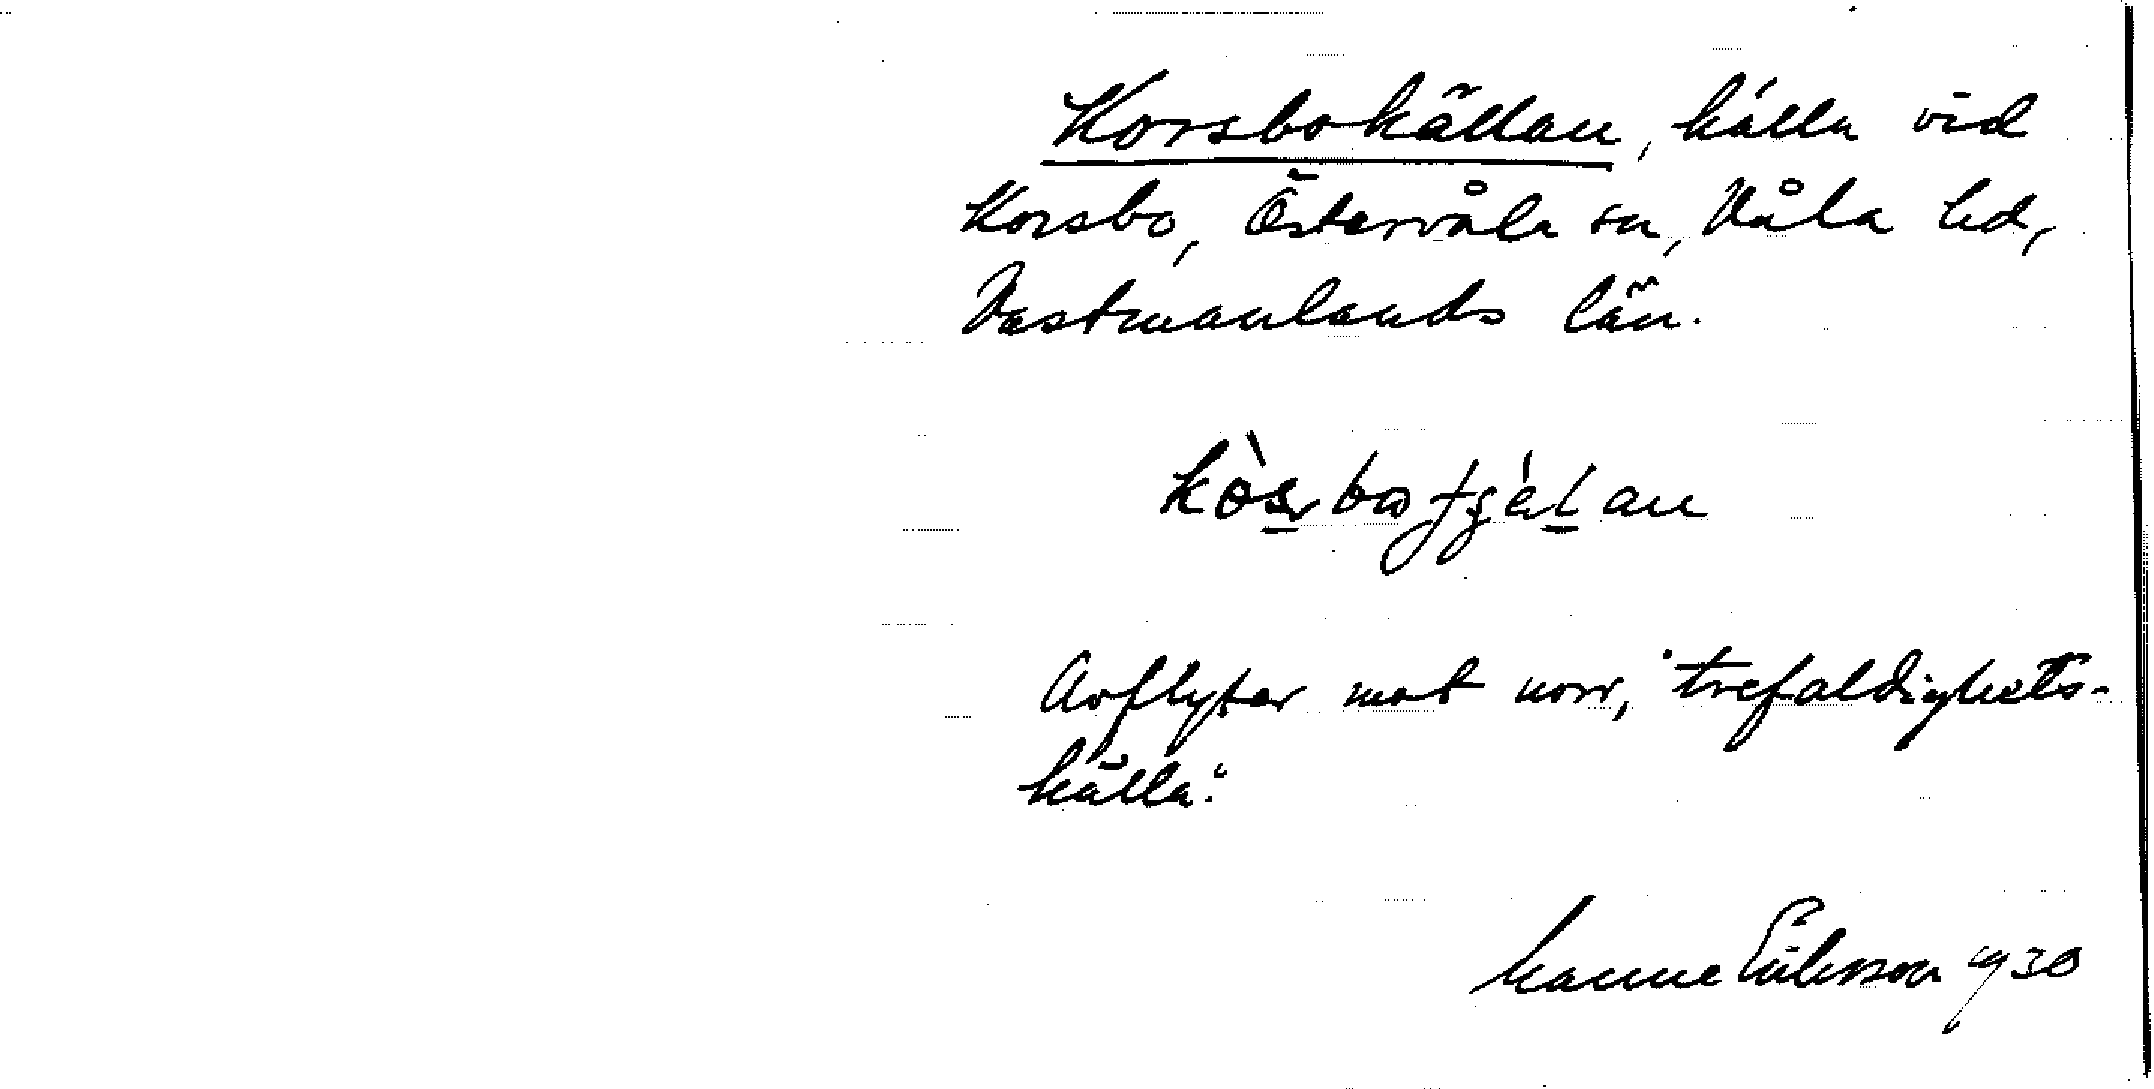 Korsbokällan, källa vid
Korsbo, Östervåla sn, Våla hd,
Västmanlands län.
Avflyter mot norr, "trefaldighets-
källa."
Manne Eriksson 1930